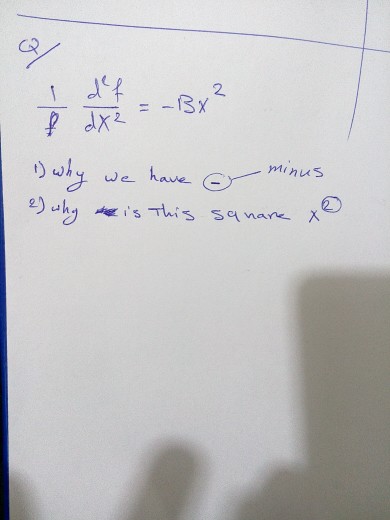 Q/
1/f d²f/dx² = -Bx²
1) why we have - minus
2) why is This square x²